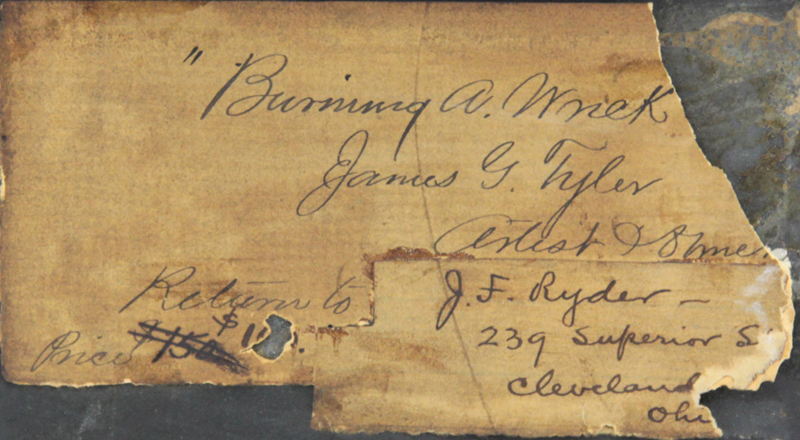 "Burning A. Wreck
James G. Tyler
Artist & Owner
Return to
J. F. Ryder –
239 Superior S
Cleveland
Ohi
Price $150 $1